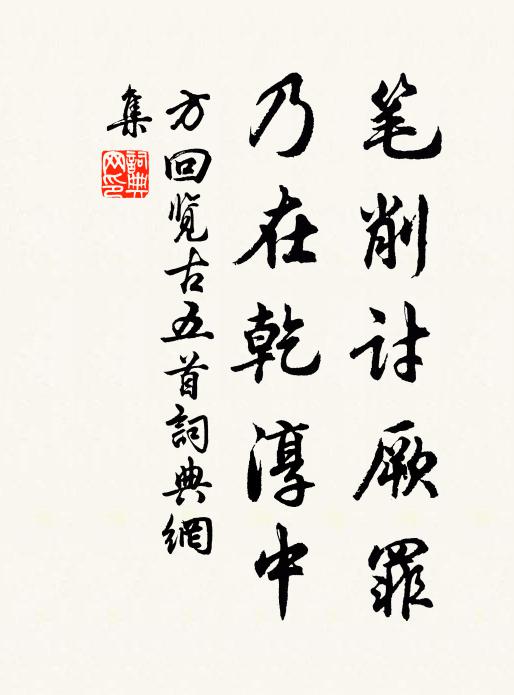 笔削讨厥罪
乃在乾淳中
方回览古五首詞典網
集
詞典网印